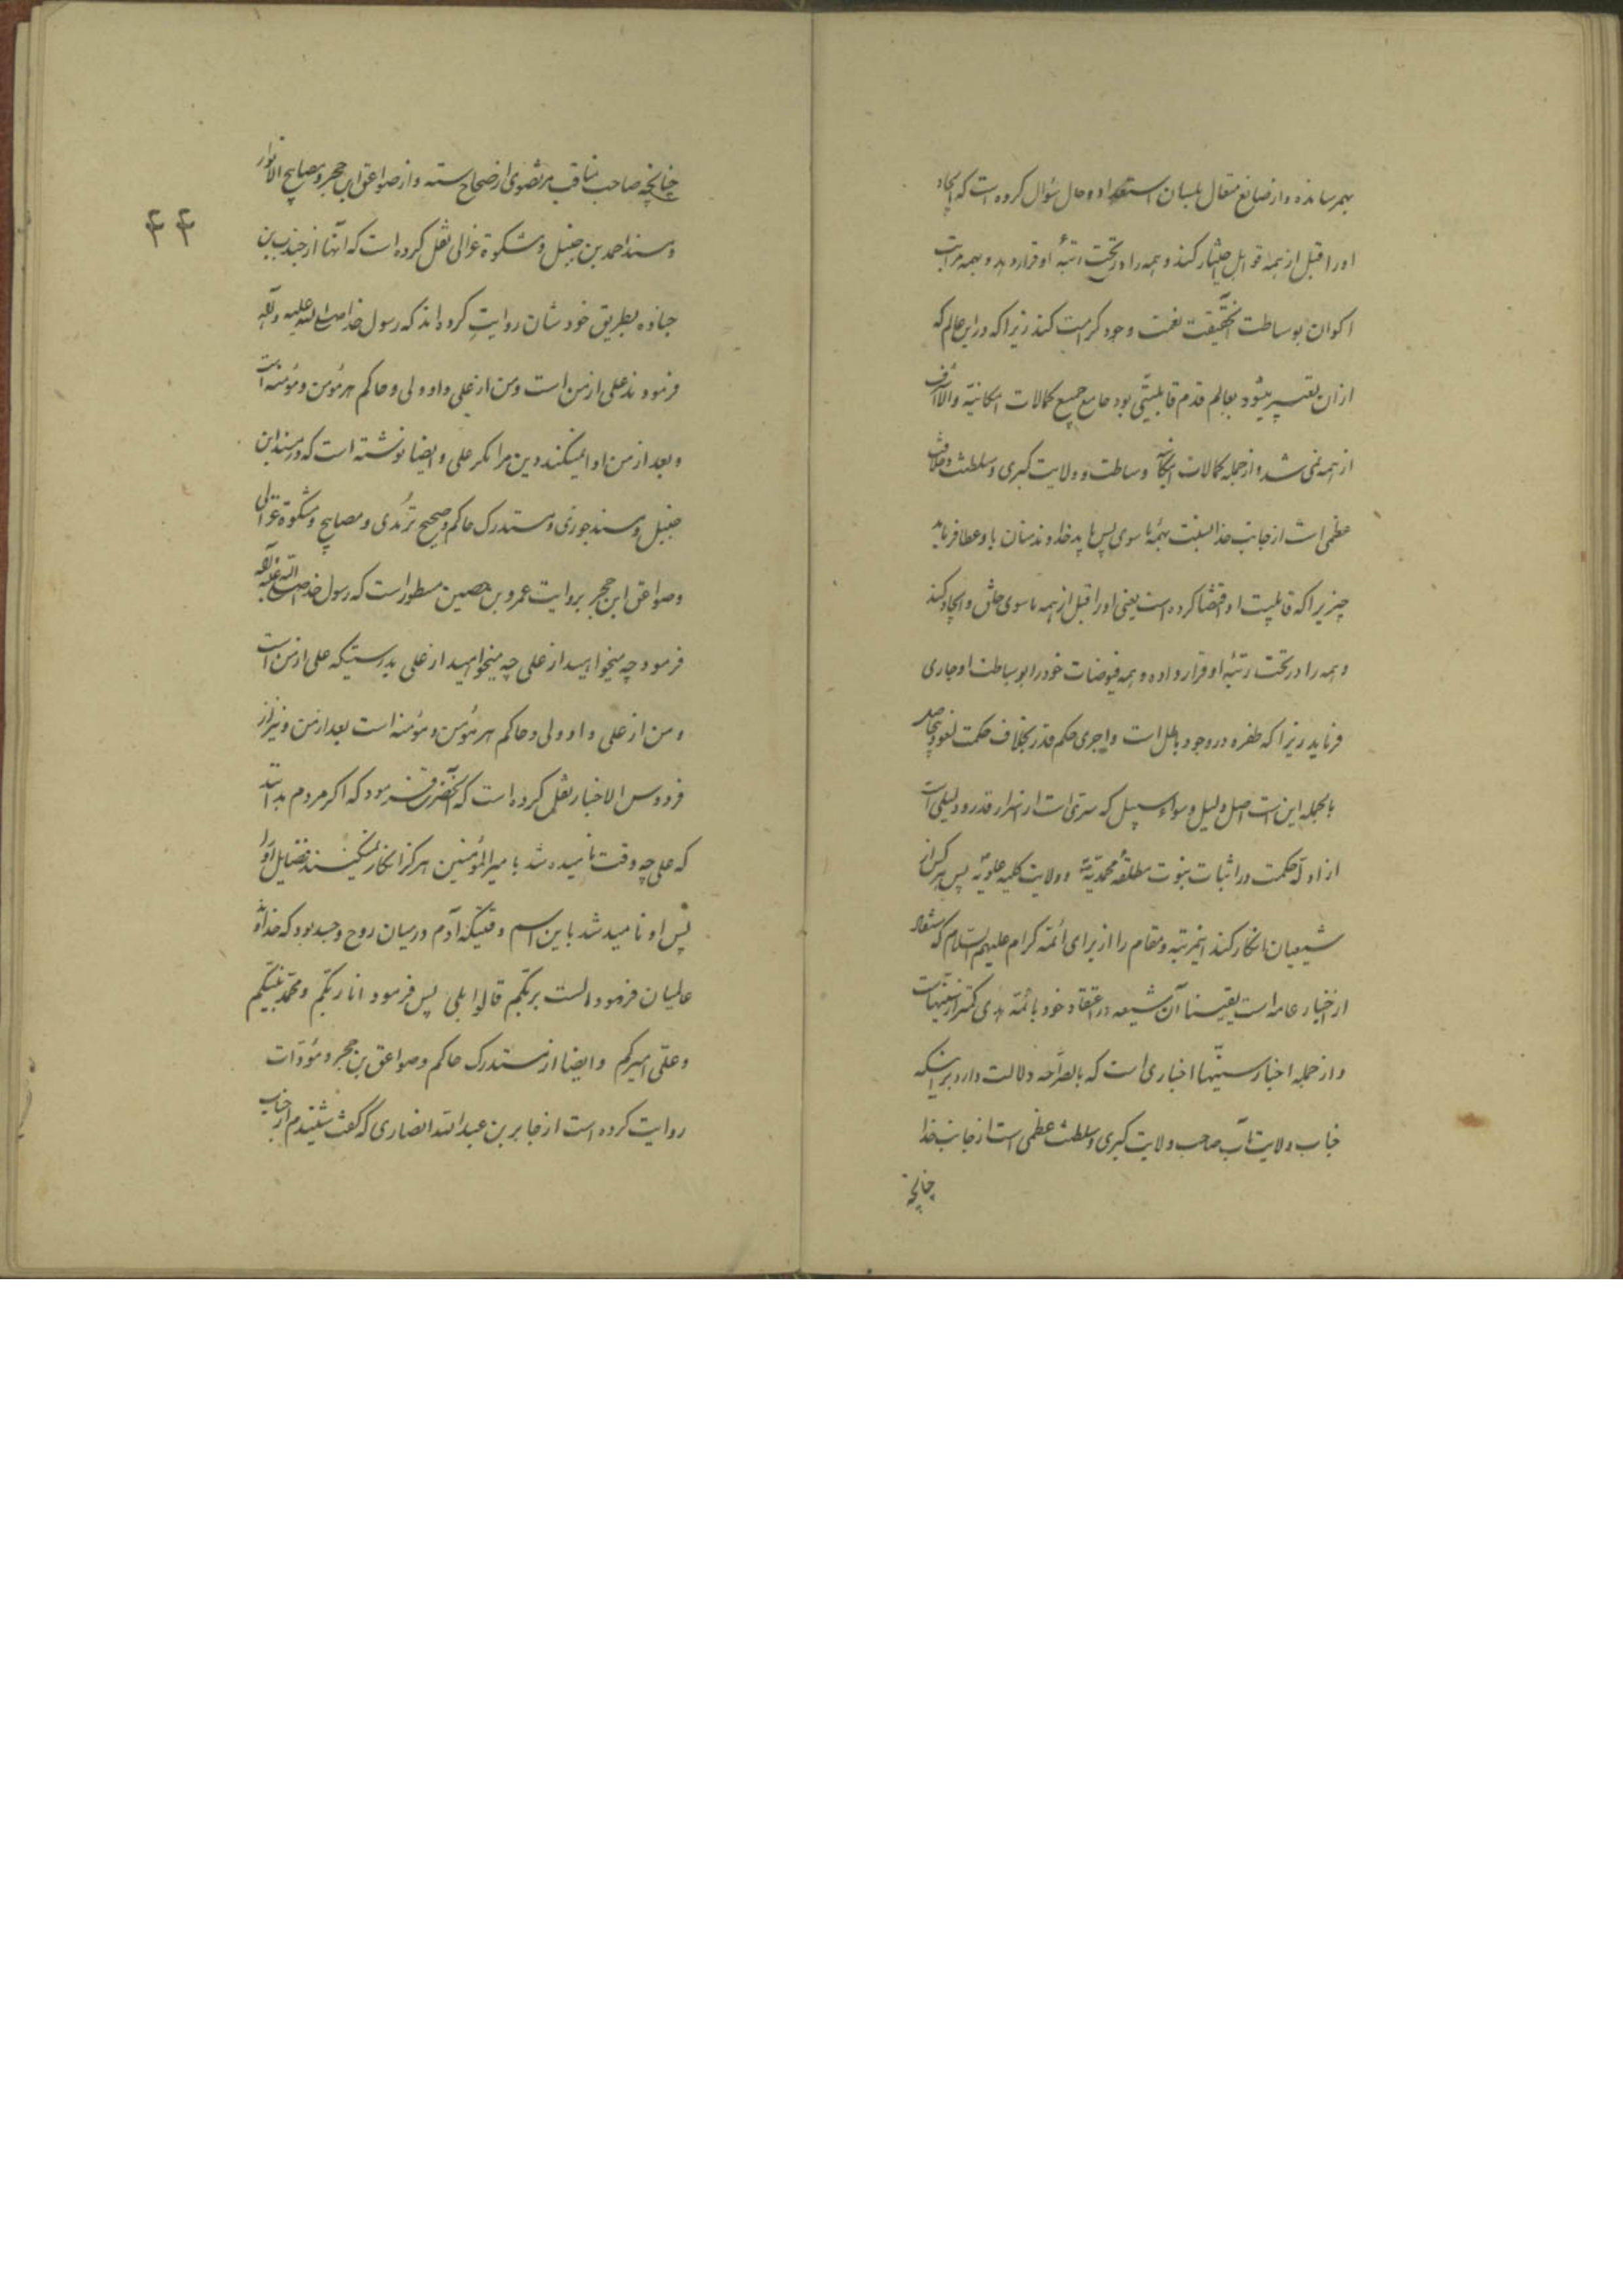 بهمرسانده و از صانع متعال بلسان استعداد و حال سؤال کرده است که ایجاد
او را قبل از همه قوابل اختیار کند و همه را در تحت رتبهٔ او قرار دهد و بهمه مراتب
اکوان بوساطت آنحقیقت نعمت وجود کرامت کند زیرا که در این عالم که
از آن تعبیر میشود بعالم قدم قابلیتی بود جامع جمیع کمالات امکانیه والا اشرف
از همه نمی شد و از جمله کمالات وساطت و ولایت کبری و سلطنت و خلافت
عظمی است از جانب خدا نسبت بهمهٔ ما سوی پس باید خداوند منان باو عطا فرماید
چیزیرا که قابلیت او اقتضا کرده است یعنی او را قبل از همه ما سوی خلق و ایجاد کند
و همه را در تحت رتبهٔ او قرار داده و همه فیوضات خود را بوساطت او جاری
فرماید زیرا که طفره در وجود باطل است و اجری حکم قدر بخلاف حکمت لغو و بیحاصل
بالجمله این است اصل دلیل و سواء سبیل که سری است از اسرار قدر و دلیلی است
از ادلهٔ حکمت در اثبات نبوت مطلقهٔ محمدیه و ولایت کلیه علویه پس هر کس از
شیعیان انکار کند اینمرتبه و مقام را از برای ائمه کرام علیهم السلام که مستفاد
از اخبار عامه است یقینا آن شیعه در اعتقاد خود بائمه هدی کمتر از سنیهاست
و از جمله اخبار سنیها اخباری است که بالصراحه دلالت دارد بر اینکه
جناب ولایت مآب صاحب ولایت کبری و سلطنت عظمی است از جانب خدا
چنانچه
چنانچه صاحب مناقب مرتضوی از صحاح سته و از صواعق ابن حجر و مصابیح الانوار
و مسند احمد بن حنبل و مشکوة غزالی نقل کرده است که آنها از جندب بن
جناده بطریق خودشان روایت کرده اند که رسول خدا صلی الله علیه و آله
فرمودند علی از من است و من از علی و او ولی و حاکم هر مؤمن و مؤمنه است
و بعد از من ادا نمیکند دین مرا مکر علی و ایضا نوشته است که در مسند ابن
حنبل و مسند جوزی و مستدرک حاکم و صحیح ترمدی و مصابیح و مشکوة غزالی
و صواعق ابن حجر بروایت عمرو بن حصین مسطور است که رسول خدا صلی الله علیه و آله
فرمود چه میخواهید از علی چه میخواهید از علی بدرستیکه علی از من است
و من از علی و او ولی و حاکم هر مؤمن و مؤمنه است بعد از من و نیز از
فردوس الاخبار نقل کرده است که آنحضرت فرمود که اکر مردم بدانند
که علی چه وقت نامیده شد بامیر المؤمنین هرکز انکار نمیکنند فضایل او را
پس او نامیده شد باین اسم وقتیکه آدم در میان روح و جسد بود که خدا بر
عالمیان فرمود الست بربکم قالوا بلی پس فرمود انا ربکم و محمد نبیکم
و علی امیرکم و ایضا از مستدرک حاکم و صواعق بن حجر و مؤدات
روایت کرده است از جابر بن عبد الله انصاری که گفت شنیدم از جناب